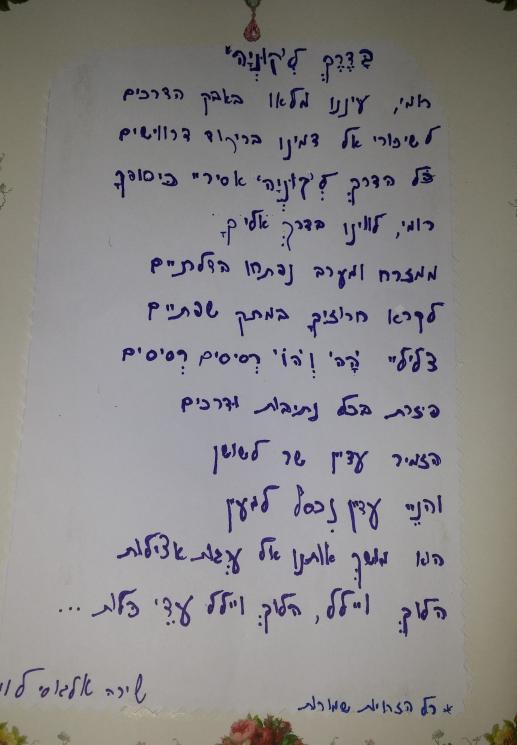 בַּדֶּרֶךְ לְ'קוֹנְיָה'*
רומי, עיננו מלאו באבק הדרכים
לשיכורי אל דמינו בריקוד דרווישים
כל הדרך לְ'קוֹנְיָה' אסיריי כיסופךָ
רומי, לווינו בדרך אליךָ
ממזרח ומערב נפתחו הדלתיים
לקרא חרוזיךָ במתק שפתיים
צלילי 'הָהּ' וְ'הוֹ' רְסיסים רְסיסים
פיזרת בכל נתיבות ודרכים
הזמיר עדיין שר לשושן
והנֵיי עדיין נִכסף לגעיין
הוא מושך אותנו אל ערגות אצילות
הלוךְ ויילל, הלוךְ ויילל עדֵי כלות ...
שירה אלגוסי לוי
* כל הזכויות שמורות